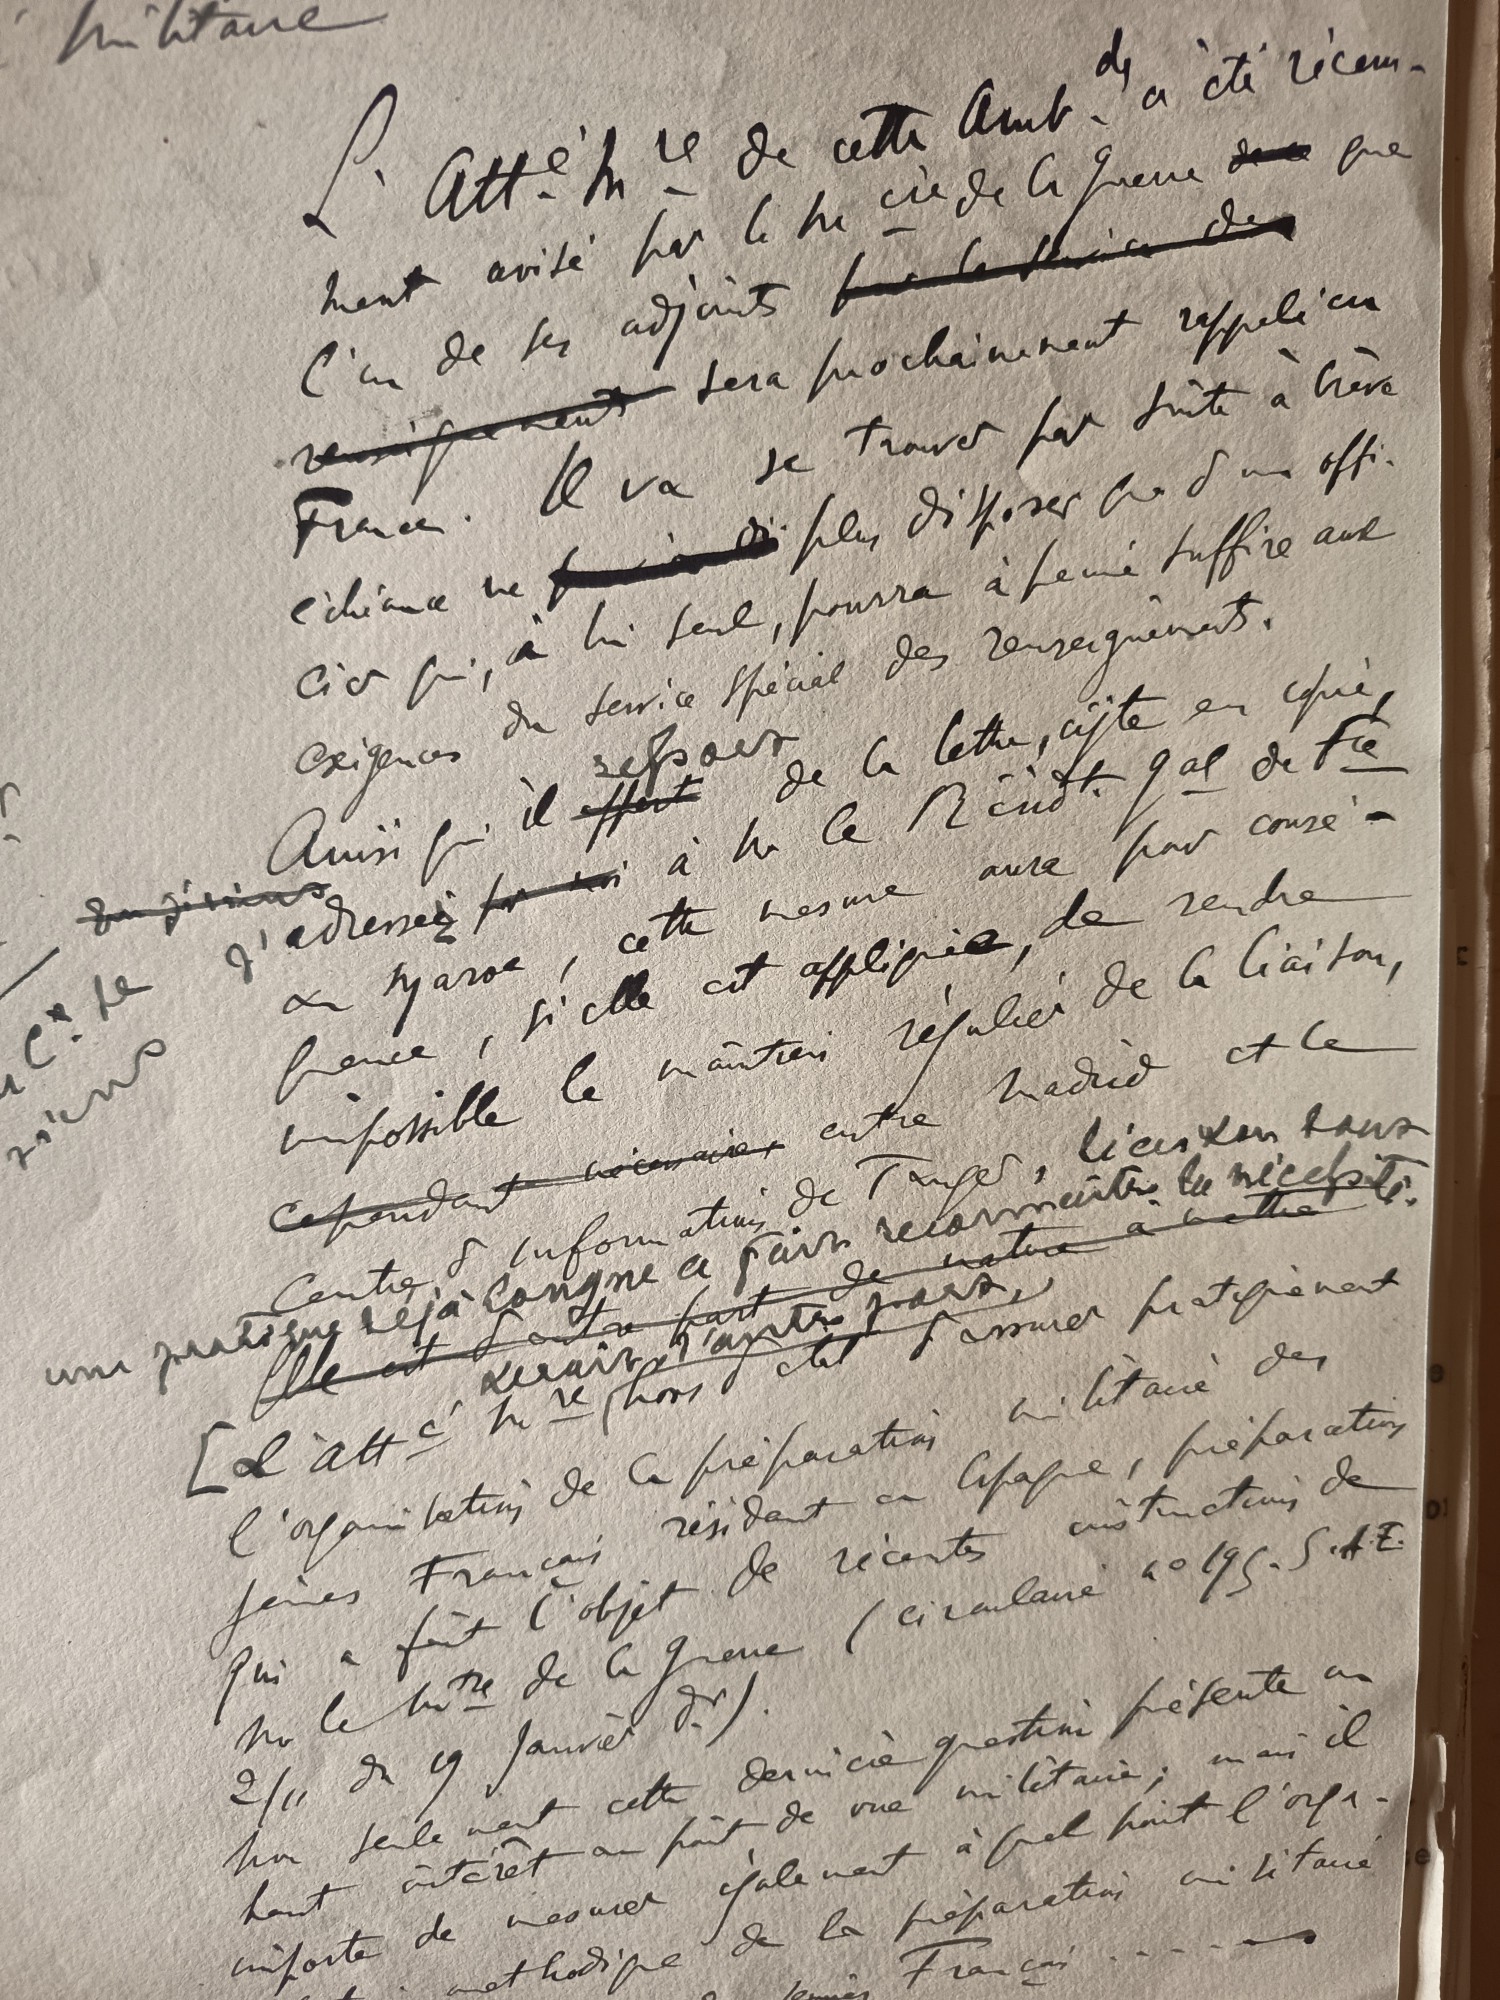 militaire
L'Att.é Mre de cette Amb.de a été récem-
ment avisé par le Mcre de la Guerre que
l'un de ses adjoints pour le service des
renseignements sera prochainement rappelé en
France. Il va se trouver par suite à brève
échéance ne plus disposer que d'un offi-
cier qui, à lui seul, pourra à peine suffire aux
exigences du service spécial des renseignements.
ressort
Ainsi qu'il appert de la lettre, cijte en copie,
j'adresse par moi à M le Résidt. gal de Fce
au Maroc, cette mesure aura pour consé-
quence, si elle est appliquée, de rendre
impossible le maintien régulier de la liaison,
cependant nécessaire, entre Madrid et le
Centre d'informations de Tanger, liaison dont
une pratique déjà longue a fait reconnaître la nécessité.
Elle est d'autre part de nature à mettre
serait, d'autre part,
[L'Atté Mre hors d'état d'assurer pratiquement
l'organisation de la préparation militaire des
jeunes Français résidant en Espagne, préparation
qui a fait l'objet de récentes instructions de
M le Mtre de la Guerre (circulaire no 195. S.A.E.
2/11 du 19 Janvier dr).
Non seulement cette dernière question présente un
haut intérêt au point de vue militaire; mais il
importe de mesurer également à quel point l'orga-
methodique de la préparation militaire
jeunes Français